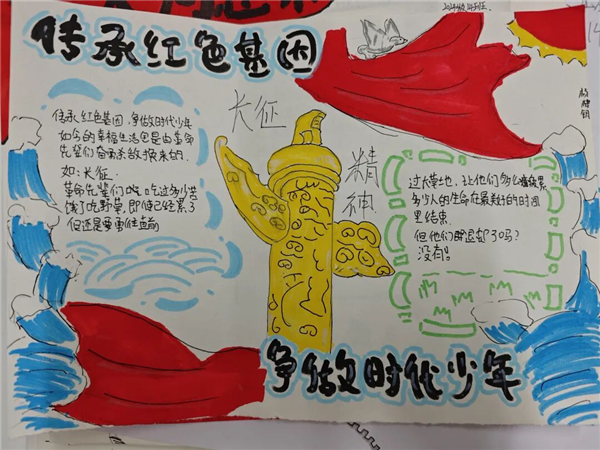 传承红色基因
长征
精神
传承红色基因,争做时代少年
如今的幸福生活因是由革命
先辈们奋勇杀敌换来的.
如:长征.
革命先辈们吃吃过多少苦
饿了吃野草,即使已经累了
但还是要勇往直前
过大草地,让他们多么疲累
多少人的生命在最美好的时间
里结束.
但他们退却了吗?
没有!
争做时代少年